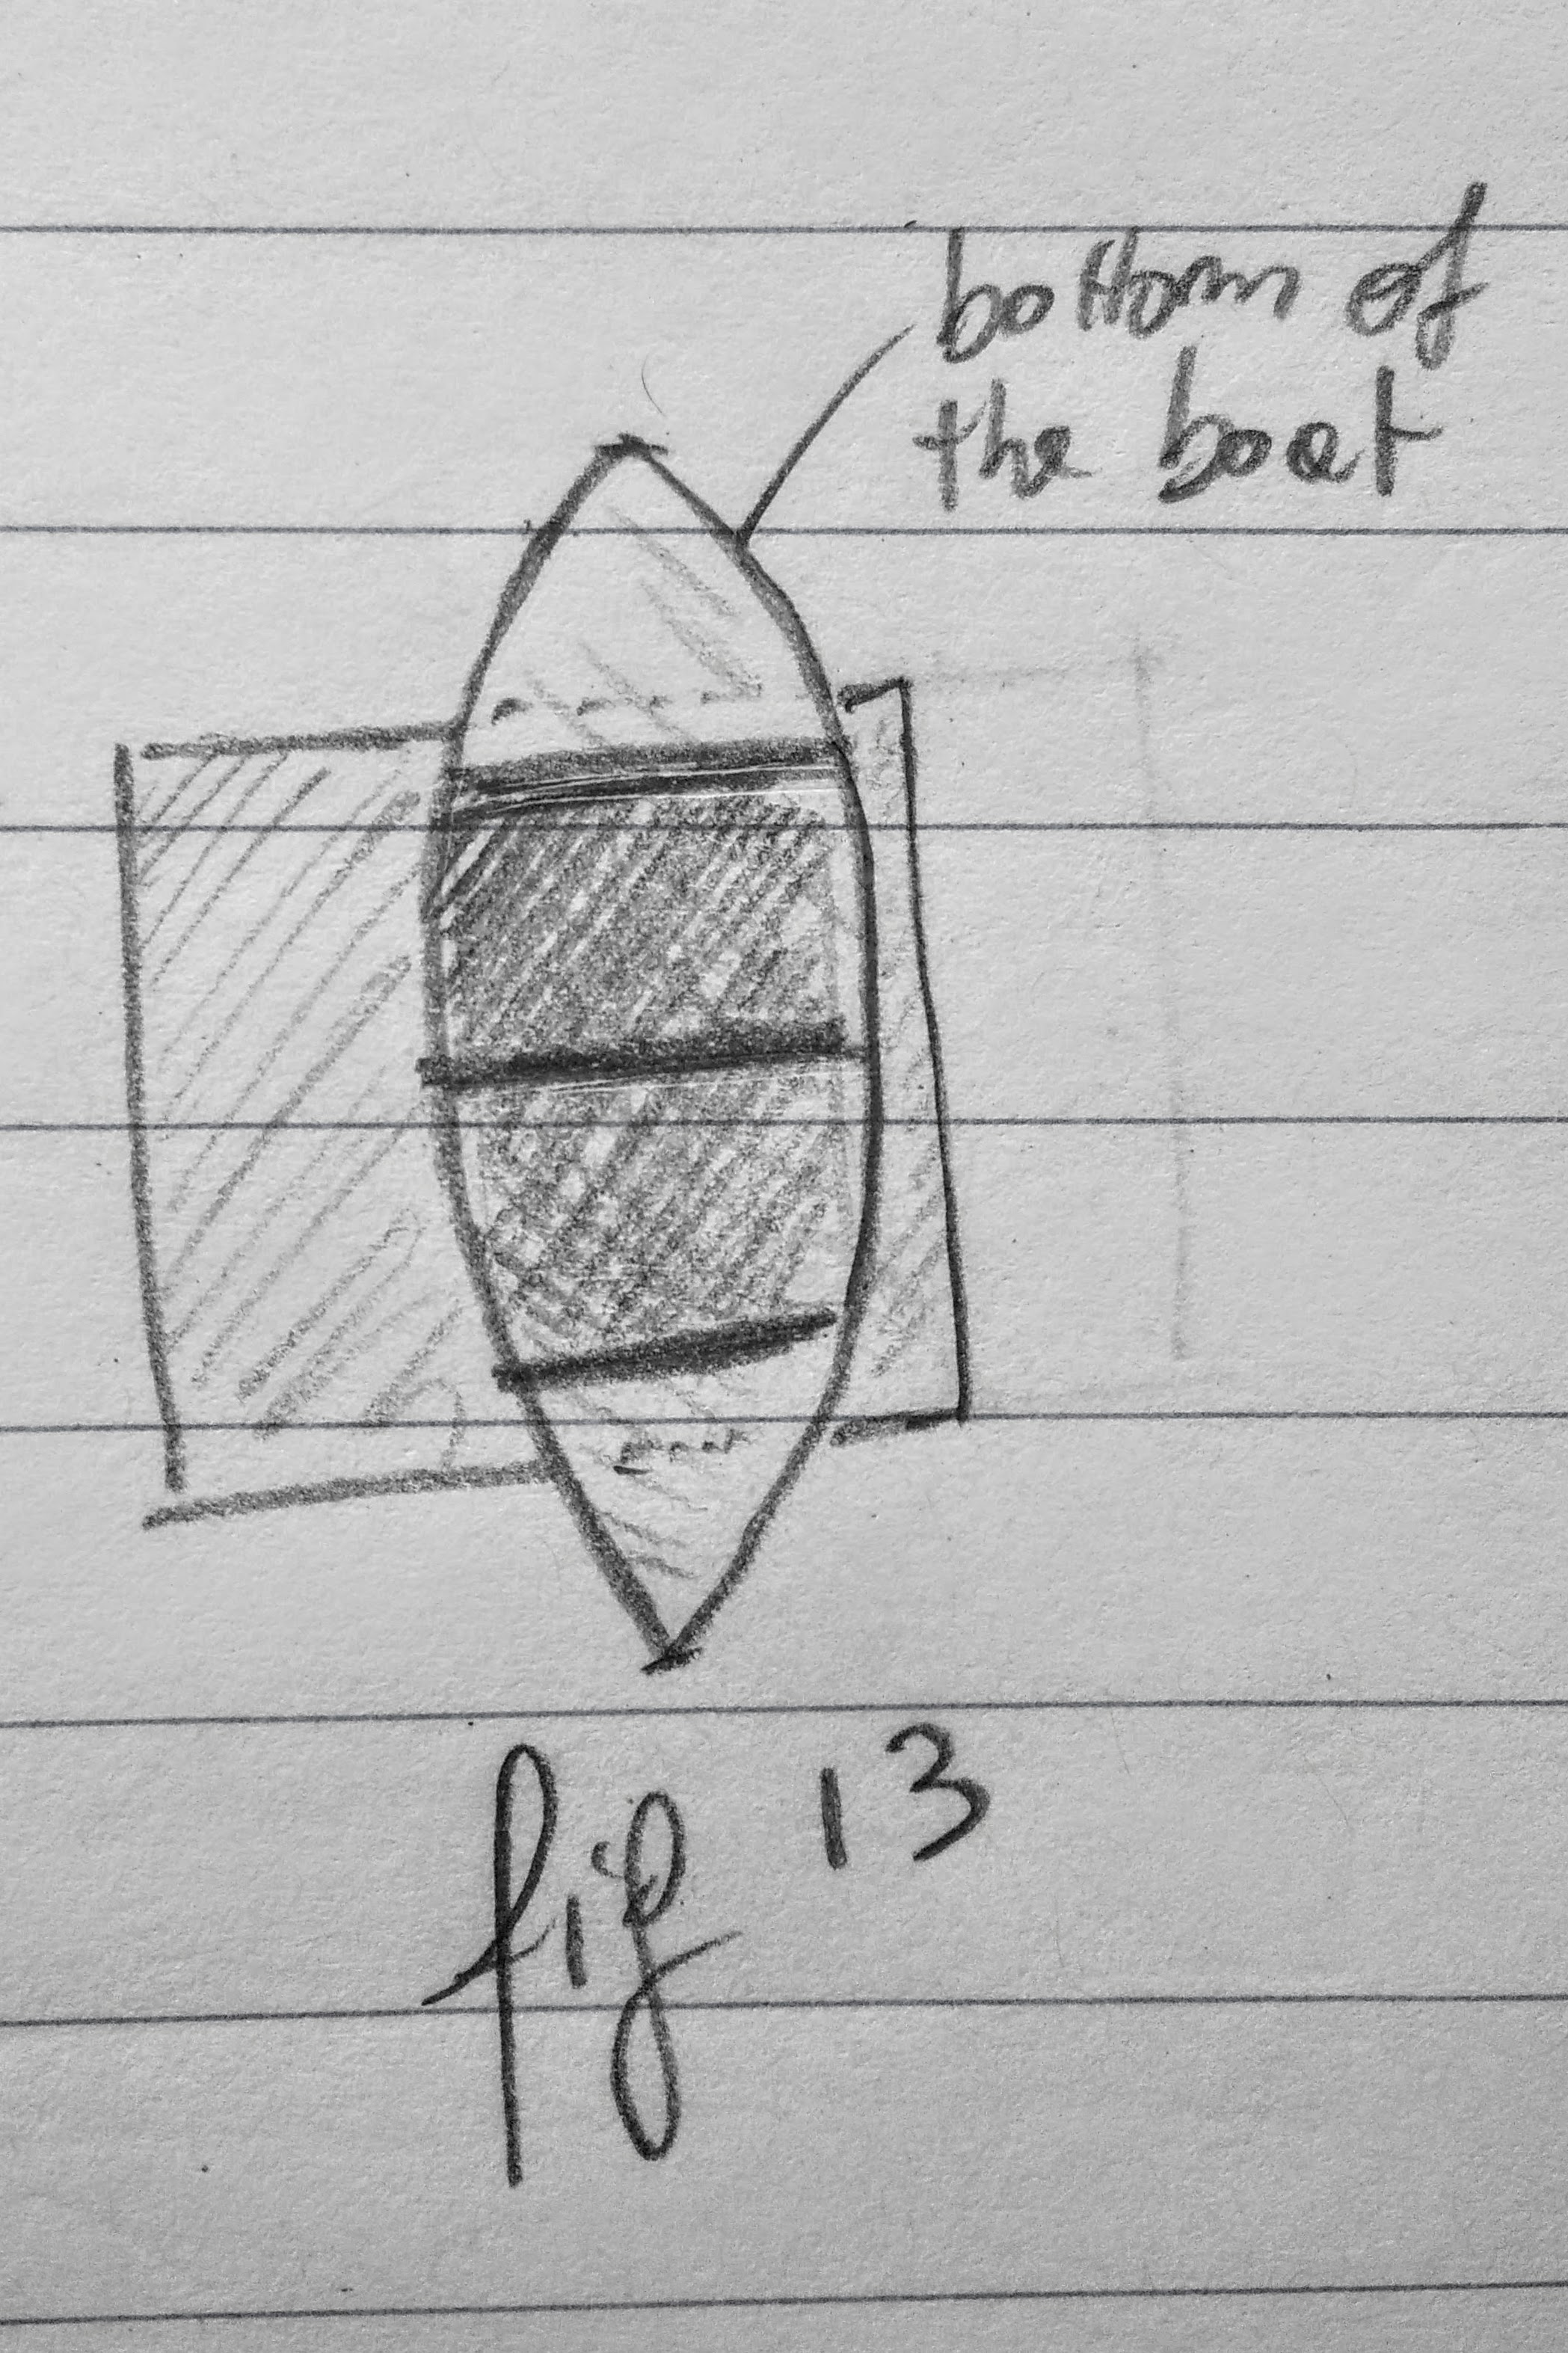 bottom of
the boat
fig 13